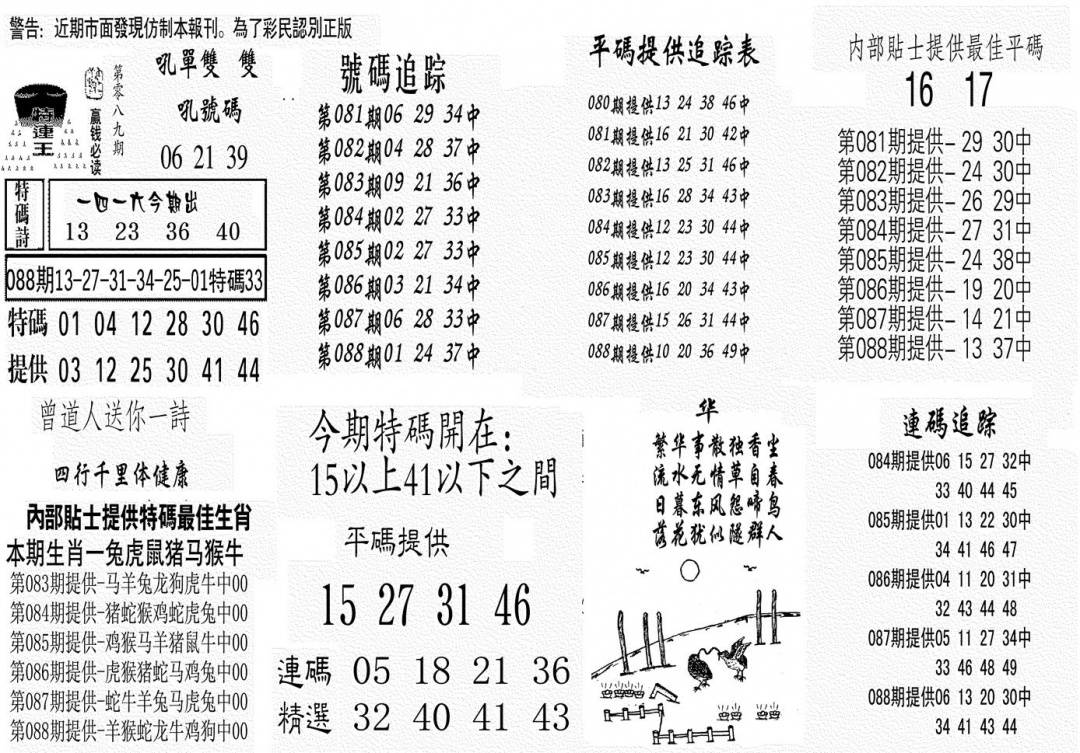 警告: 近期市面發現仿制本報刊。為了彩民認別正版
特連王
赢钱必读
第零八九期
吼單雙 雙
吼號碼
06 21 39
特碼詩
一四一六今期出
13 23 36 40
088期13-27-31-34-25-01特碼33
特碼 01 04 12 28 30 46
提供 03 12 25 30 41 44
號碼追踪
第081期06 29 34中
第082期04 28 37中
第083期09 21 36中
第084期02 27 33中
第085期02 27 33中
第086期03 21 34中
第087期06 28 33中
第088期01 24 37中
平碼提供追踪表
080期提供13 24 38 46中
081期提供16 21 30 42中
082期提供13 25 31 46中
083期提供16 28 34 43中
084期提供12 23 30 44中
085期提供12 23 30 44中
086期提供16 20 34 43中
087期提供15 26 31 44中
088期提供10 20 36 49中
内部貼士提供最佳平碼
16 17
第081期提供-29 30中
第082期提供-24 30中
第083期提供-26 29中
第084期提供-27 31中
第085期提供-24 38中
第086期提供-19 20中
第087期提供-14 21中
第088期提供-13 37中
曾道人送你一詩
四行千里体健康
內部貼士提供特碼最佳生肖
本期生肖一兔虎鼠猪马猴牛
第083期提供-马羊兔龙狗虎牛中00
第084期提供-猪蛇猴鸡蛇虎兔中00
第085期提供-鸡猴马羊猪鼠牛中00
第086期提供-虎猴猪蛇马鸡兔中00
第087期提供-蛇牛羊兔马虎兔中00
第088期提供-羊猴蛇龙牛鸡狗中00
今期特碼開在:
15以上41以下之間
平碼提供
15 27 31 46
連碼 05 18 21 36
精選 32 40 41 43
华
繁华事散独香尘
流水无情草自春
日暮东风怨啼鸟
落花犹似隧群人
連碼追踪
084期提供06 15 27 32中
33 40 44 45
085期提供01 13 22 30中
34 41 46 47
086期提供04 11 20 31中
32 43 44 48
087期提供05 11 27 34中
33 46 48 49
088期提供06 13 20 30中
34 41 43 44